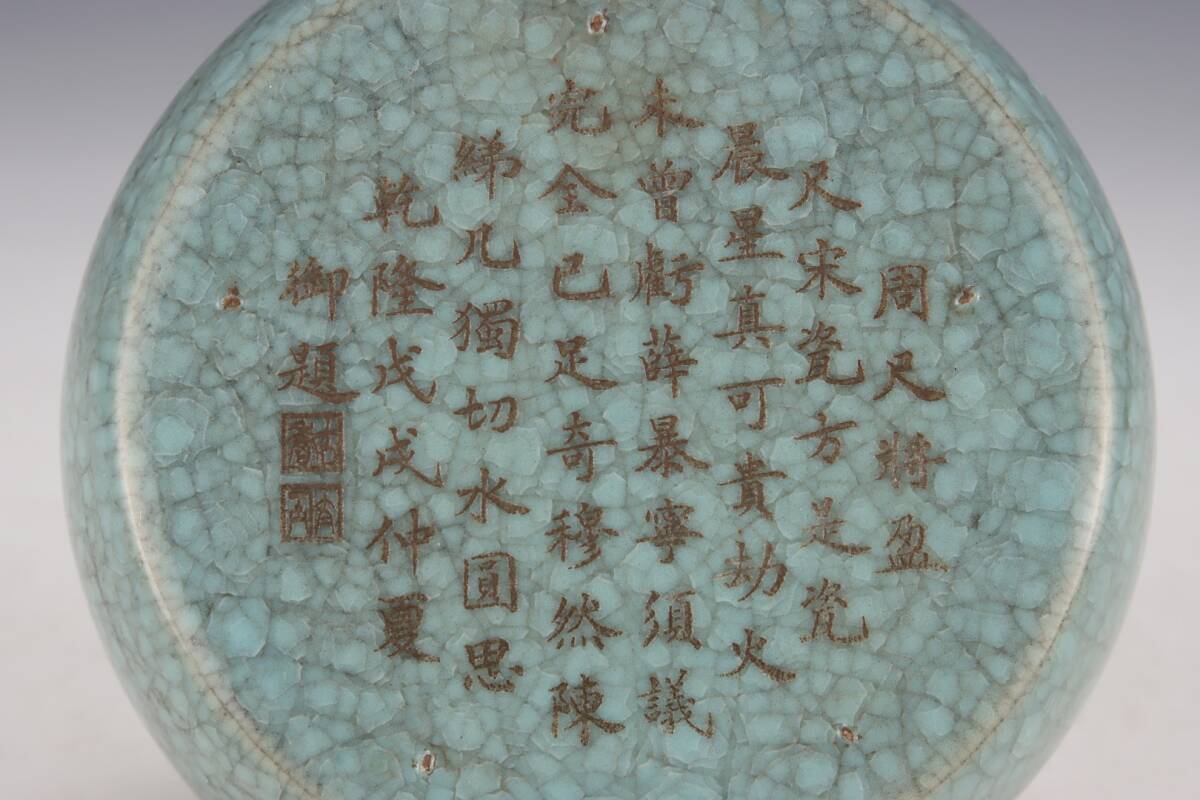 周尺將盈
尺宋瓷方是瓷
晨星真可貴劫火
未曾虧薛暴寧須議
完全已足奇穆然陳
綈几獨切水圓思
乾隆戊戌仲夏
御題